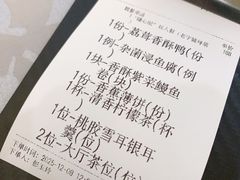 1份-荔蓉香酥鸭(份)
1例-杂菌浸鱼腐(例)
1块-香酥紫菜鳗鱼(块)
1份-香蕉薄饼(份)
1杯-清香柠檬茶(杯)
1位-桃胶雪耳银耳羹(位)
2位-大厅茶位(位)
下单时间:2025-12-09
下单人: